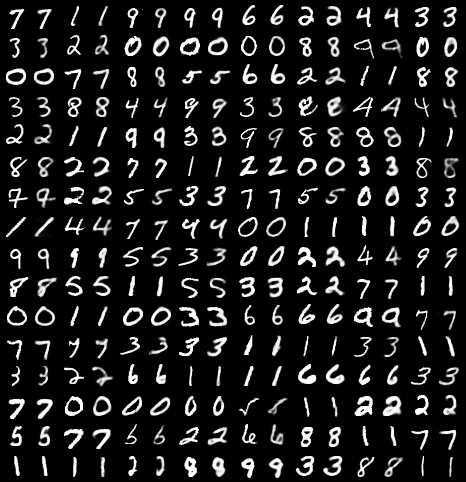 7 7 1 1 9 9 9 9 6 6 2 2 4 4 3 3
3 3 2 2 0 0 0 0 0 0 8 8 9 9 0 0
0 0 7 7 8 8 5 5 6 6 2 2 1 1 8 8
3 3 8 8 4 4 9 9 3 3 8 8 4 4 4 4
2 2 1 1 9 9 3 3 9 9 8 8 8 8 1 1
8 8 2 2 7 7 1 1 2 2 0 0 3 3 8 8
7 9 2 2 5 5 3 3 7 7 5 5 0 0 3 3
1 1 4 4 7 7 4 4 0 0 1 1 1 1 0 0
9 9 9 9 5 5 3 3 0 0 2 2 4 4 9 9
8 8 5 5 1 1 5 5 3 3 2 2 7 7 1 1
0 0 1 1 0 0 3 3 6 6 6 6 9 9 7 7
7 7 7 7 3 3 3 3 1 1 1 1 3 3 1 1
3 3 2 2 6 6 1 1 1 1 6 6 6 6 3 3
7 7 0 0 0 0 0 0 1 1 2 2 2 2
5 5 7 7 5 6 2 2 6 6 8 8 1 1 7 7
1 1 1 1 2 2 8 8 9 9 3 3 8 8 1 1